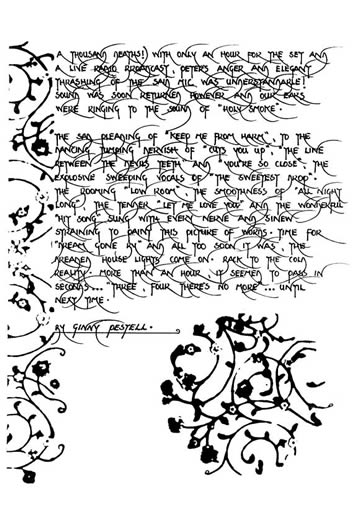 A THOUSAND DEATHS! WITH ONLY AN HOUR FOR THE SET AND
A LIVE RADIO BROADCAST, PETER'S ANGER AND ELEGANT
THRASHING OF THE SAID MIC. WAS UNDERSTANDABLE!
SOUND WAS SOON RETURNED HOWEVER AND OUR EARS
WERE RINGING TO THE SOUND OF "HOLY SMOKE".
THE SAD PLEADING OF "KEEP ME FROM HARM", TO THE
DANCING, JUMPING DERVISH OF "CUTS YOU UP". THE LINE
BETWEEN THE DEVILS TEETH AND "YOU'RE SO CLOSE", THE
EXPLOSIVE SWEEPING VOCALS OF "THE SWEETEST DROP".
THE BOOMING "LOW ROOM", THE SMOOTHNESS OF "ALL NIGHT
LONG". THE TENDER "LET ME LOVE YOU" AND THE WONDERFUL
"HIT SONG" SUNG WITH EVERY NERVE AND SINEW
STRAINING TO PAINT THIS PICTURE OF WORDS. TIME FOR
"DREAM GONE BY" AND ALL TOO SOON IT WAS THE
DREADED HOUSE LIGHTS COME ON. BACK TO THE COLD
REALITY. MORE THAN AN HOUR, IT SEEMED TO PASS IN
SECONDS... "THREE, FOUR THERE'S NO MORE"... UNTIL
NEXT TIME.
BY GINNY PESTELL.